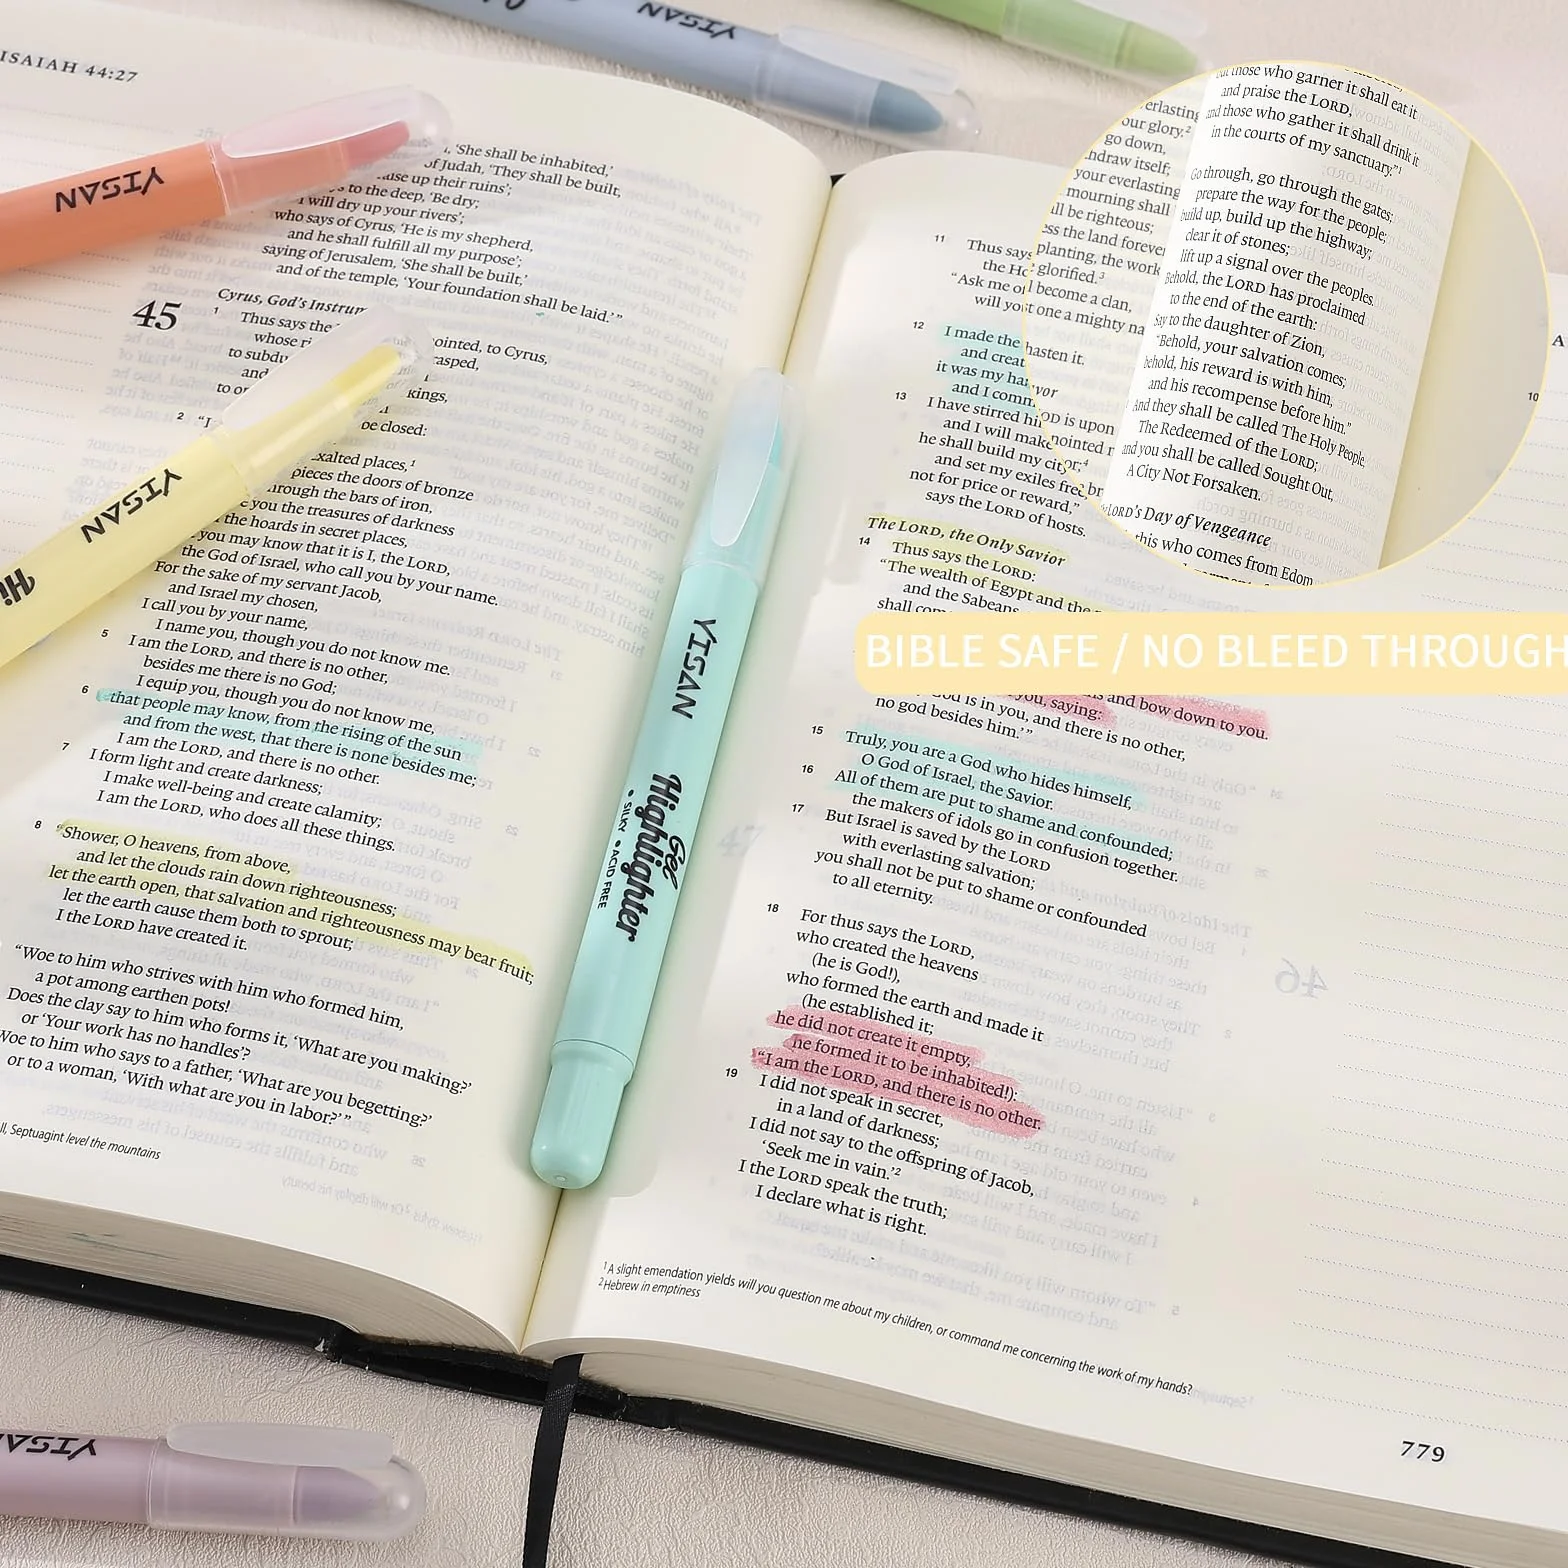 ISAIAH 44:27
YISAN
YISAN
'She shall be inhabited,'
of Judah, 'They shall be built,
up their ruins';
to the deep, 'Be dry;
I will dry up your rivers';
who says of Cyrus, 'He is my shepherd,
and he shall fulfill all my purpose';
saying of Jerusalem, 'She shall be built,'
and of the temple, 'Your foundation shall be laid.'"
45
Cyrus, God's
1 Thus says the
to Cyrus,
whose
to
and
kings,
to
2 "I
be closed:
exalted places,1
pieces the doors of bronze
through the bars of iron,
you the treasures of darkness
the hoards in secret places,
you may know that it is I, the LORD,
the God of Israel, who call you by your name.
For the sake of my servant Jacob,
and Israel my chosen,
I call you by your name,
I name you, though you do not know me.
5 I am the LORD, and there is no other,
besides me there is no God;
I equip you, though you do not know me,
6 that people may know, from the rising of the sun
and from the west, that there is none besides me;
I am the LORD, and there is no other.
7 I form light and create darkness;
I make well-being and create calamity;
I am the LORD, who does all these things.
8 "Shower, O heavens, from above,
and let the clouds rain down righteousness;
let the earth open, that salvation and righteousness may bear fruit;
let the earth cause them both to sprout;
I the LORD have created it.
"Woe to him who strives with him who formed him,
a pot among earthen pots!
Does the clay say to him who forms it, 'What are you making?'
or 'Your work has no handles'?
Woe to him who says to a father, 'What are you begetting?'
or to a woman, 'With what are you in labor?'"
Septuagint level the mountains
YISAN
YISAN
YISAN
Gel
Highlighter
• SILKY • ACID FREE
11 Thus says
the
"Ask me
will you
12 I made the
and
it was my
and I
13 I have stirred
and I will make
he shall build my city
and set my exiles free,
not for price or reward,"
says the LORD of hosts.
The LORD, the Only Savior
14 Thus says the LORD:
"The wealth of Egypt and the
and the Sabeans
shall
and bow down to you.
you, saying:
God is in you, and there is no other,
no god besides him.'"
15 Truly, you are a God who hides himself,
O God of Israel, the Savior.
16 All of them are put to shame and confounded;
the makers of idols go in confusion together.
17 But Israel is saved by the LORD
with everlasting salvation;
you shall not be put to shame or confounded
to all eternity.
18 For thus says the LORD,
who created the heavens
(he is God!),
who formed the earth and made it
(he established it;
he did not create it empty,
he formed it to be inhabited!):
"I am the LORD, and there is no other.
19 I did not speak in secret,
in a land of darkness;
I did not say to the offspring of Jacob,
'Seek me in vain.'2
I the LORD speak the truth;
I declare what is right.
1 A slight emendation yields will you question me about my children, or command me concerning the work of my hands?
2 Hebrew in emptiness
779
everlasting
our glory.2
go down,
withdraw itself;
your everlasting
mourning shall
be righteous;
the land forever
planting, the work
glorified.3
become a clan,
one a mighty
hasten it.
is upon
anointed
but those who garner it shall eat it
and praise the LORD,
and those who gather it shall drink it
in the courts of my sanctuary."1
Go through, go through the gates;
prepare the way for the people;
build up, build up the highway;
clear it of stones;
lift up a signal over the peoples.
Behold, the LORD has proclaimed
to the end of the earth:
Say to the daughter of Zion,
"Behold, your salvation comes;
behold, his reward is with him,
and his recompense before him."
And they shall be called The Holy People,
The Redeemed of the LORD;
and you shall be called Sought Out,
A City Not Forsaken.
LORD's Day of Vengeance
this who comes from Edom
10
BIBLE SAFE / NO BLEED THROUGH